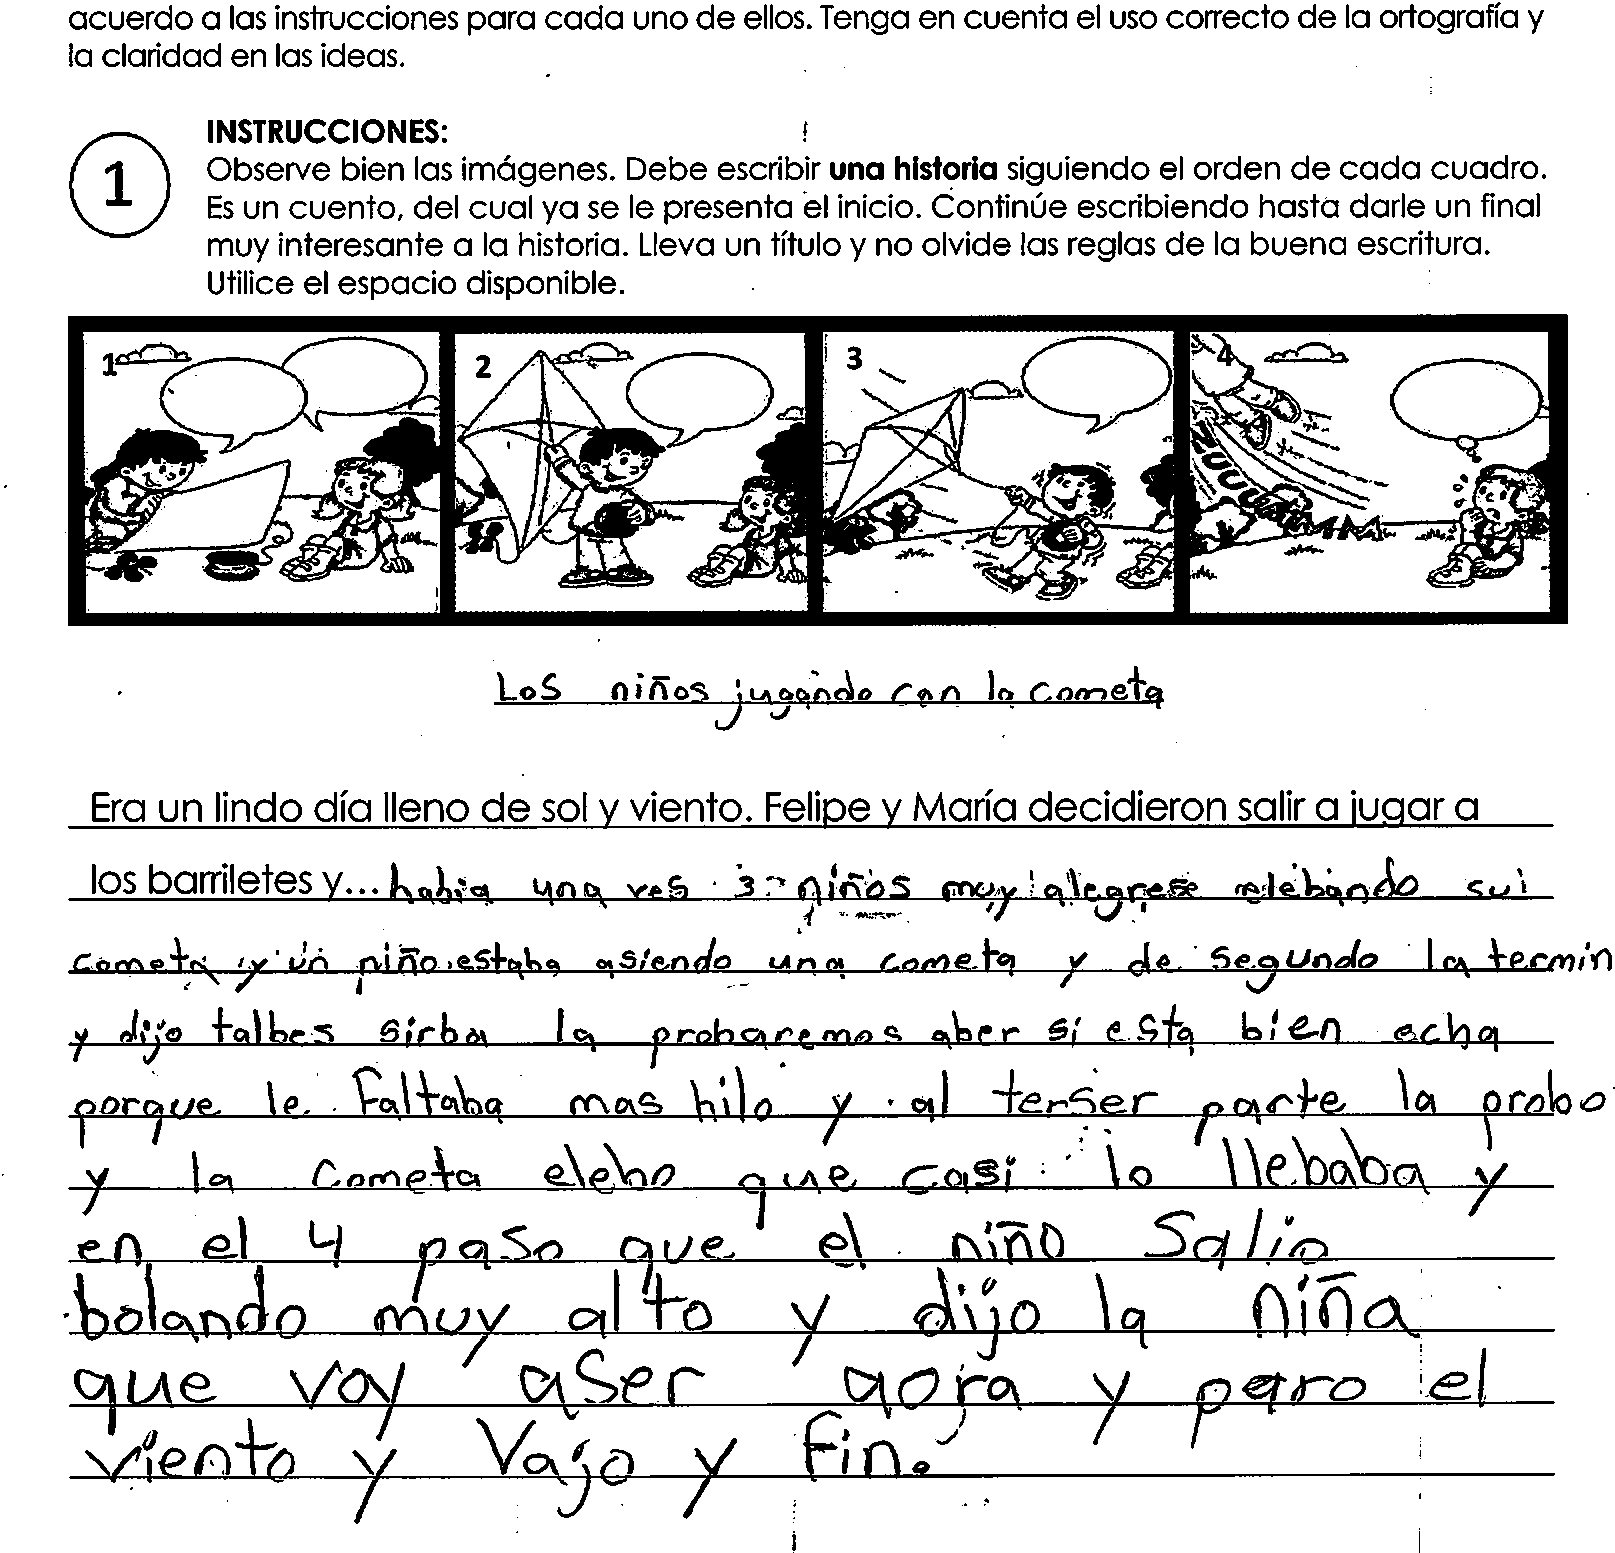 acuerdo a las instrucciones para cada uno de ellos. Tenga en cuenta el uso correcto de la ortografía y
la claridad en las ideas.
1
INSTRUCCIONES:
Observe bien las imágenes. Debe escribir una historia siguiendo el orden de cada cuadro.
Es un cuento, del cual ya se le presenta el inicio. Continúe escribiendo hasta darle un final
muy interesante a la historia. Lleva un título y no olvide las reglas de la buena escritura.
Utilice el espacio disponible.
1 2 3 4
Los niños jugando con la cometa
Era un lindo día lleno de sol y viento. Felipe y María decidieron salir a jugar a
los barriletes y... habia una ves 3 niños muy alegrese elebando su
cometa y un niño estaba asiendo una cometa y de segundo la termin
y dijo talbes sirba la probaremos aber si esta bien echa
porque le faltaba mas hilo y al terser parte la probo
y la cometa elebo que casi lo llebaba y
en el 4 paso que el niño Salio
bolando muy alto y dijo la niña
que voy aser aora y paro el
viento y Vajo y fin.